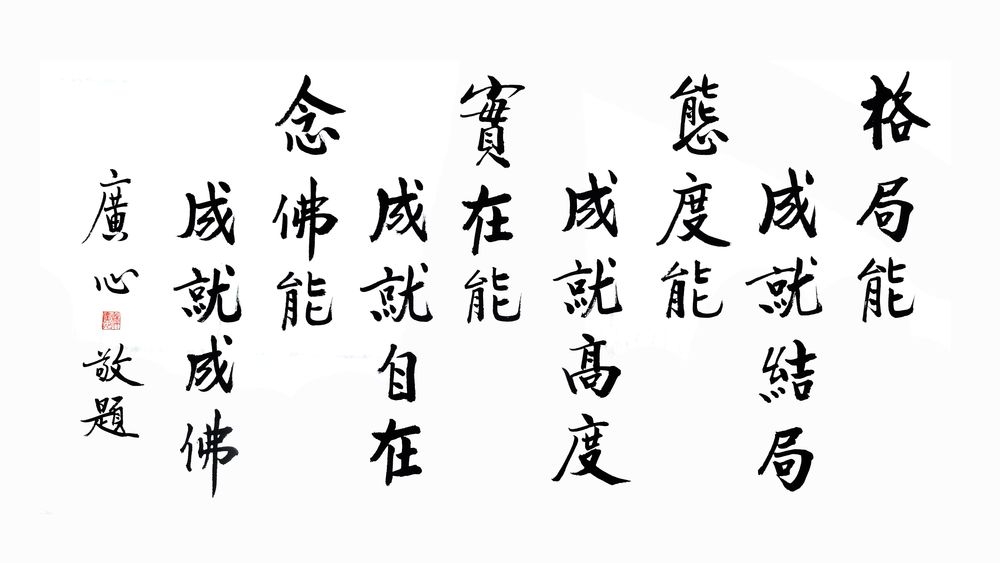 格局能
成就結局
態度能
成就高度
實在能
成就自在
念佛能
成就成佛
廣心敬題